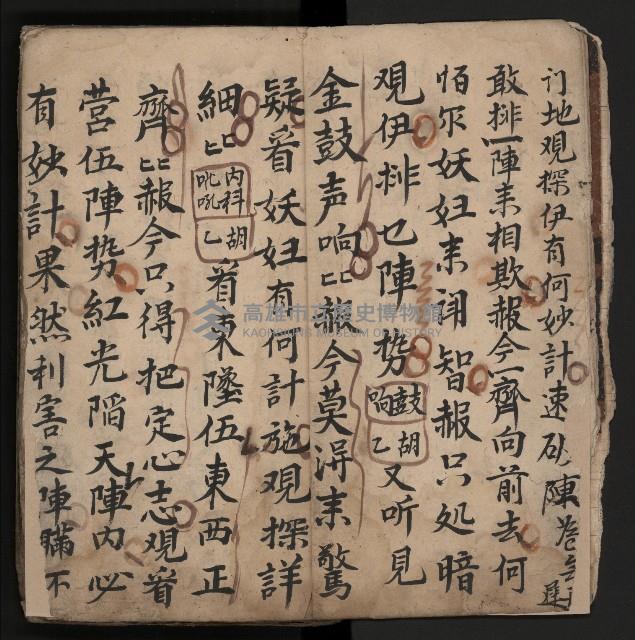 地观探伊有何妙計速砍陳
敢排一陣来相欺赧今一齊向前去何
怕尔妖妇来闘智赧只処暗
覌伊排乜陣势
鼓胡
响乙
又听見
金鼓声响匕赧今莫得来驚
疑看妖妇有何計施覌探詳
細匕
内科胡
吡吼乙
看東墜伍東西正
齊匕赧今只得把定心志覌看
营伍陣势紅光陷天陣内必
有妙計果然利害之陣瞞不
高雄市立歷史博物館
KAOHSIUNG MUSEUM OF HISTORY